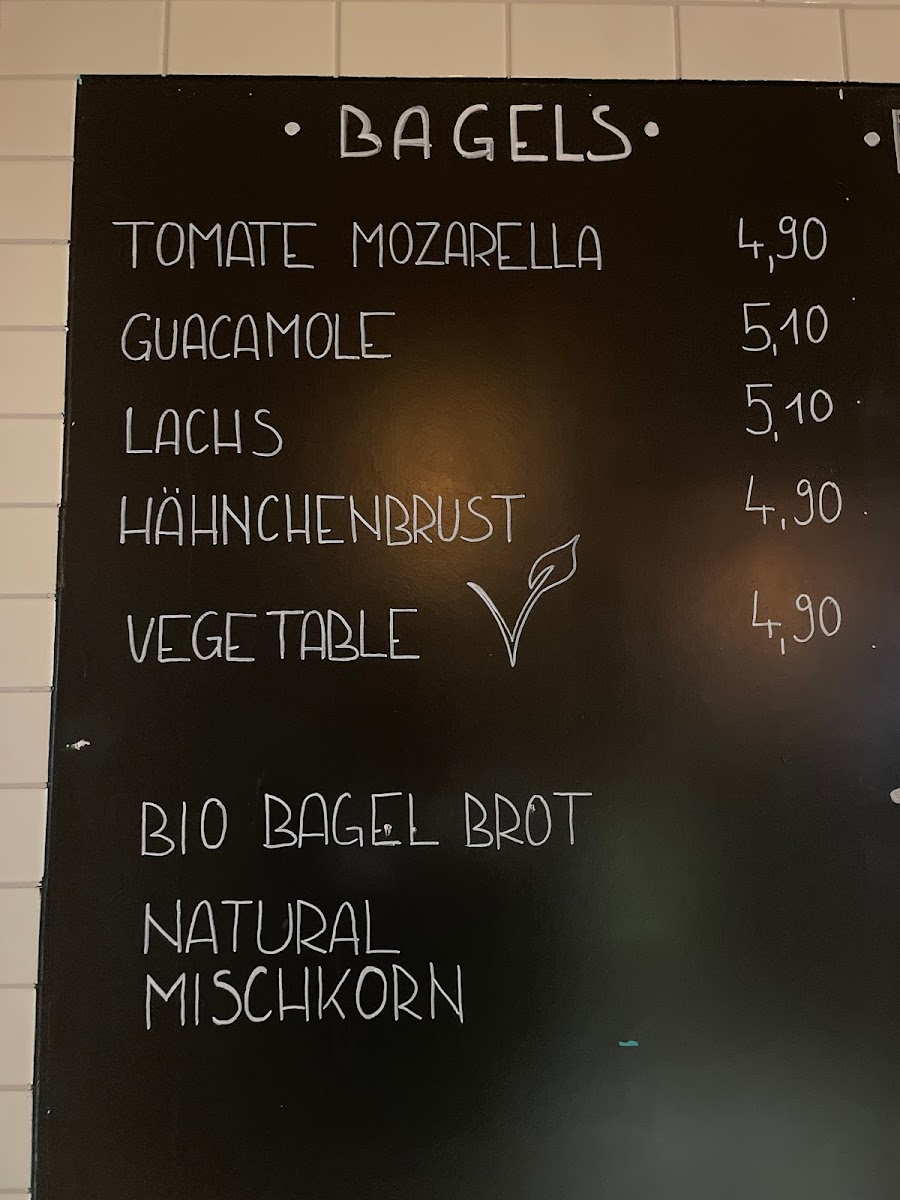 • BAGELS •
TOMATE MOZARELLA 4,90
GUACAMOLE 5,10
LACHS 5,10
HÄHNCHENBRUST 4,90
VEGETABLE V 4,90
BIO BAGEL BROT
NATURAL
MISCHKORN